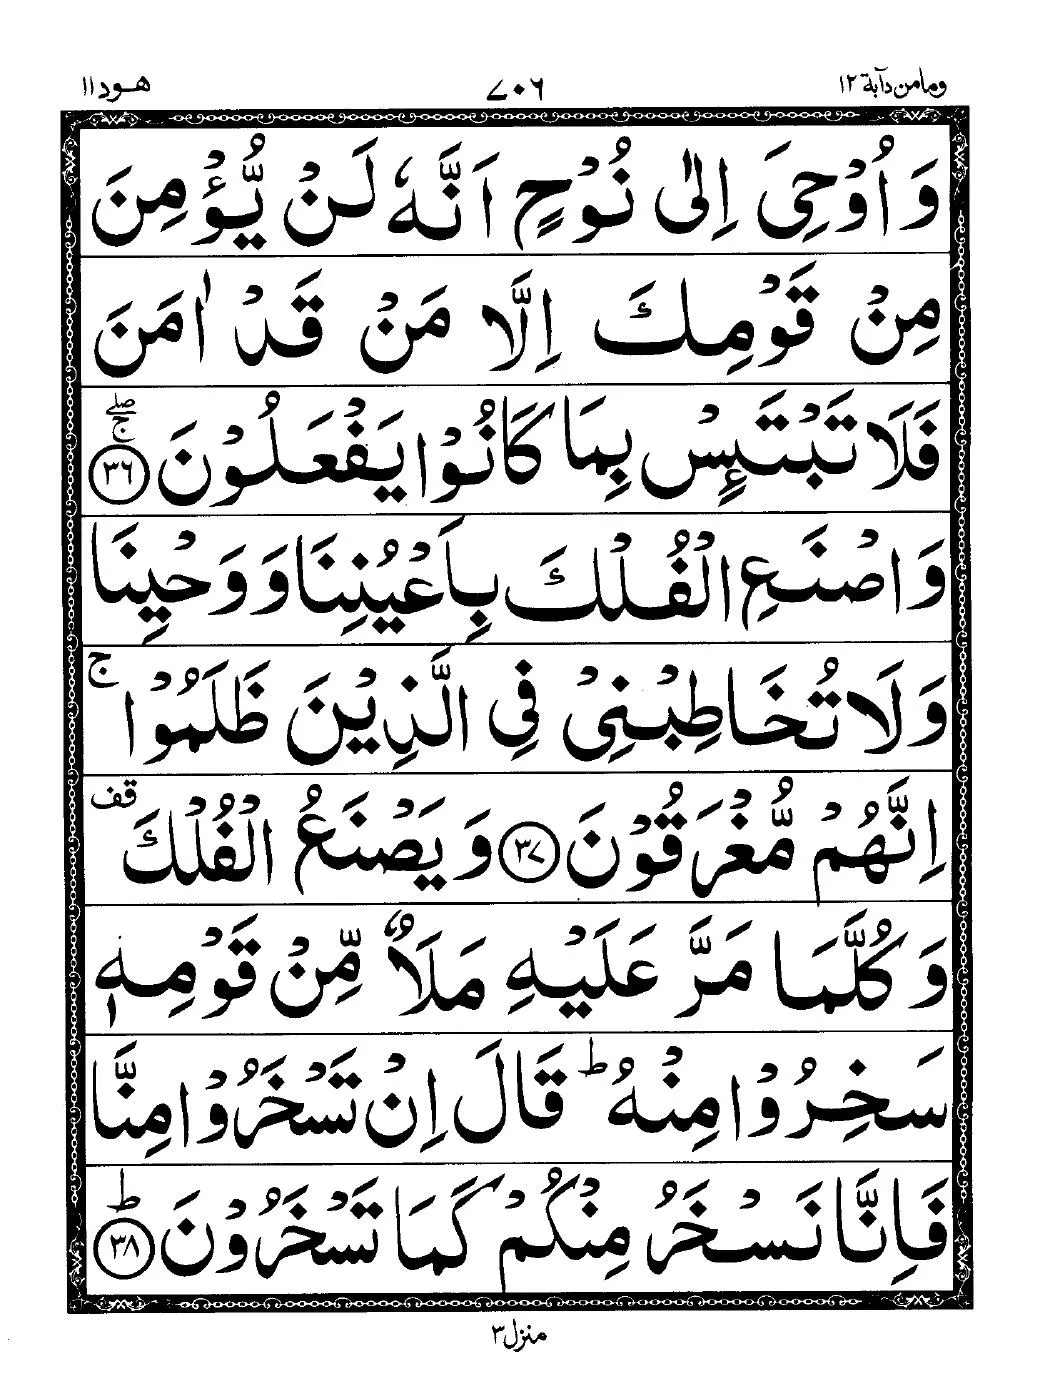 وما من دآبة ١٢ ٧٠٦ هود ١١
وَ اُوْحِیَ اِلٰی نُوْحٍ اَنَّهٗ لَنْ یُّؤْمِنَ
مِنْ قَوْمِكَ اِلَّا مَنْ قَدْ اٰمَنَ
فَلَا تَبْتَىِٕسْ بِمَا كَانُوْا یَفْعَلُوْنَ ۚۖ ﴿۳۶﴾
وَ اصْنَعِ الْفُلْكَ بِاَعْیُنِنَا وَ وَحْیِنَا
وَ لَا تُخَاطِبْنِیْ فِی الَّذِیْنَ ظَلَمُوْا ۚ
اِنَّهُمْ مُّغْرَقُوْنَ ﴿۳۷﴾ وَ یَصْنَعُ الْفُلْكَ قف
وَ كُلَّمَا مَرَّ عَلَیْهِ مَلَاٌ مِّنْ قَوْمِهٖ
سَخِرُوْا مِنْهُ ؕ قَالَ اِنْ تَسْخَرُوْا مِنَّا
فَاِنَّا نَسْخَرُ مِنْكُمْ كَمَا تَسْخَرُوْنَ ؕ ﴿۳۸﴾
منزل ٣